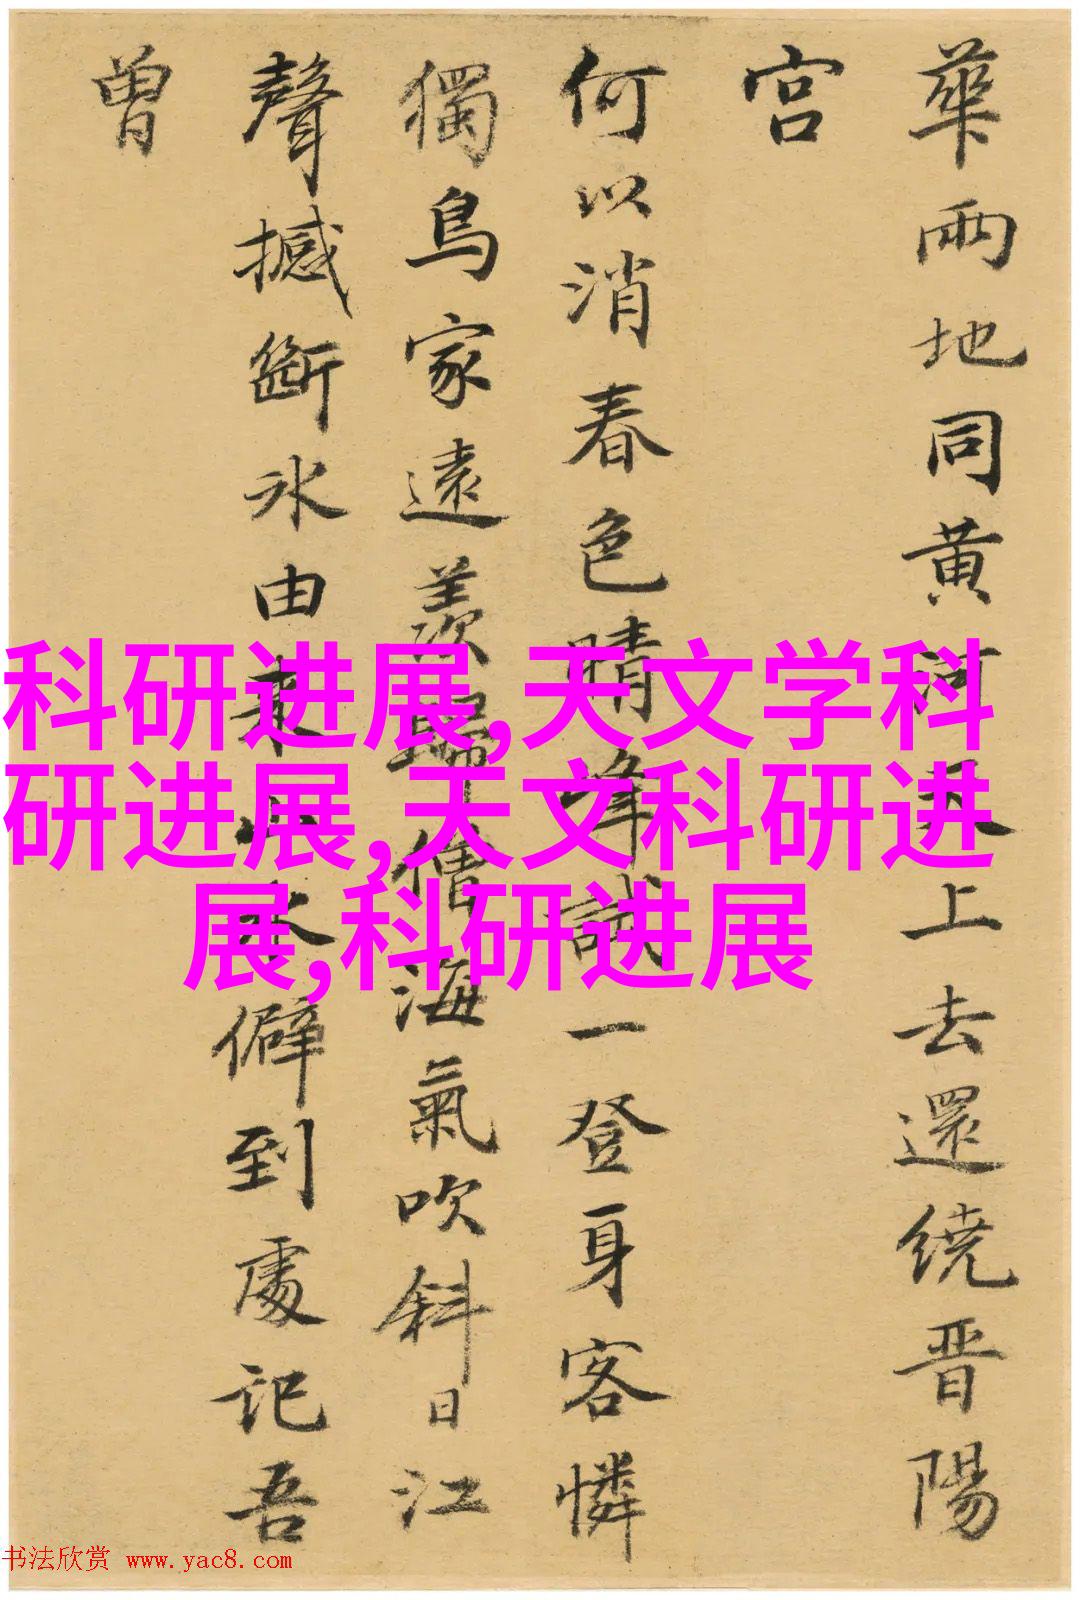 華兩地同黃河天上去還繞晉陽
宮
何以消春色晴峰試一登身客憐
獨鳥家遠羨歸僧海氣吹斜日江
聲撼斷氷由來山水僻到處記吾
曾
科研进展,天文学科
研进展,天文科研进
展,科研进展
书法欣赏 www.yac8.com